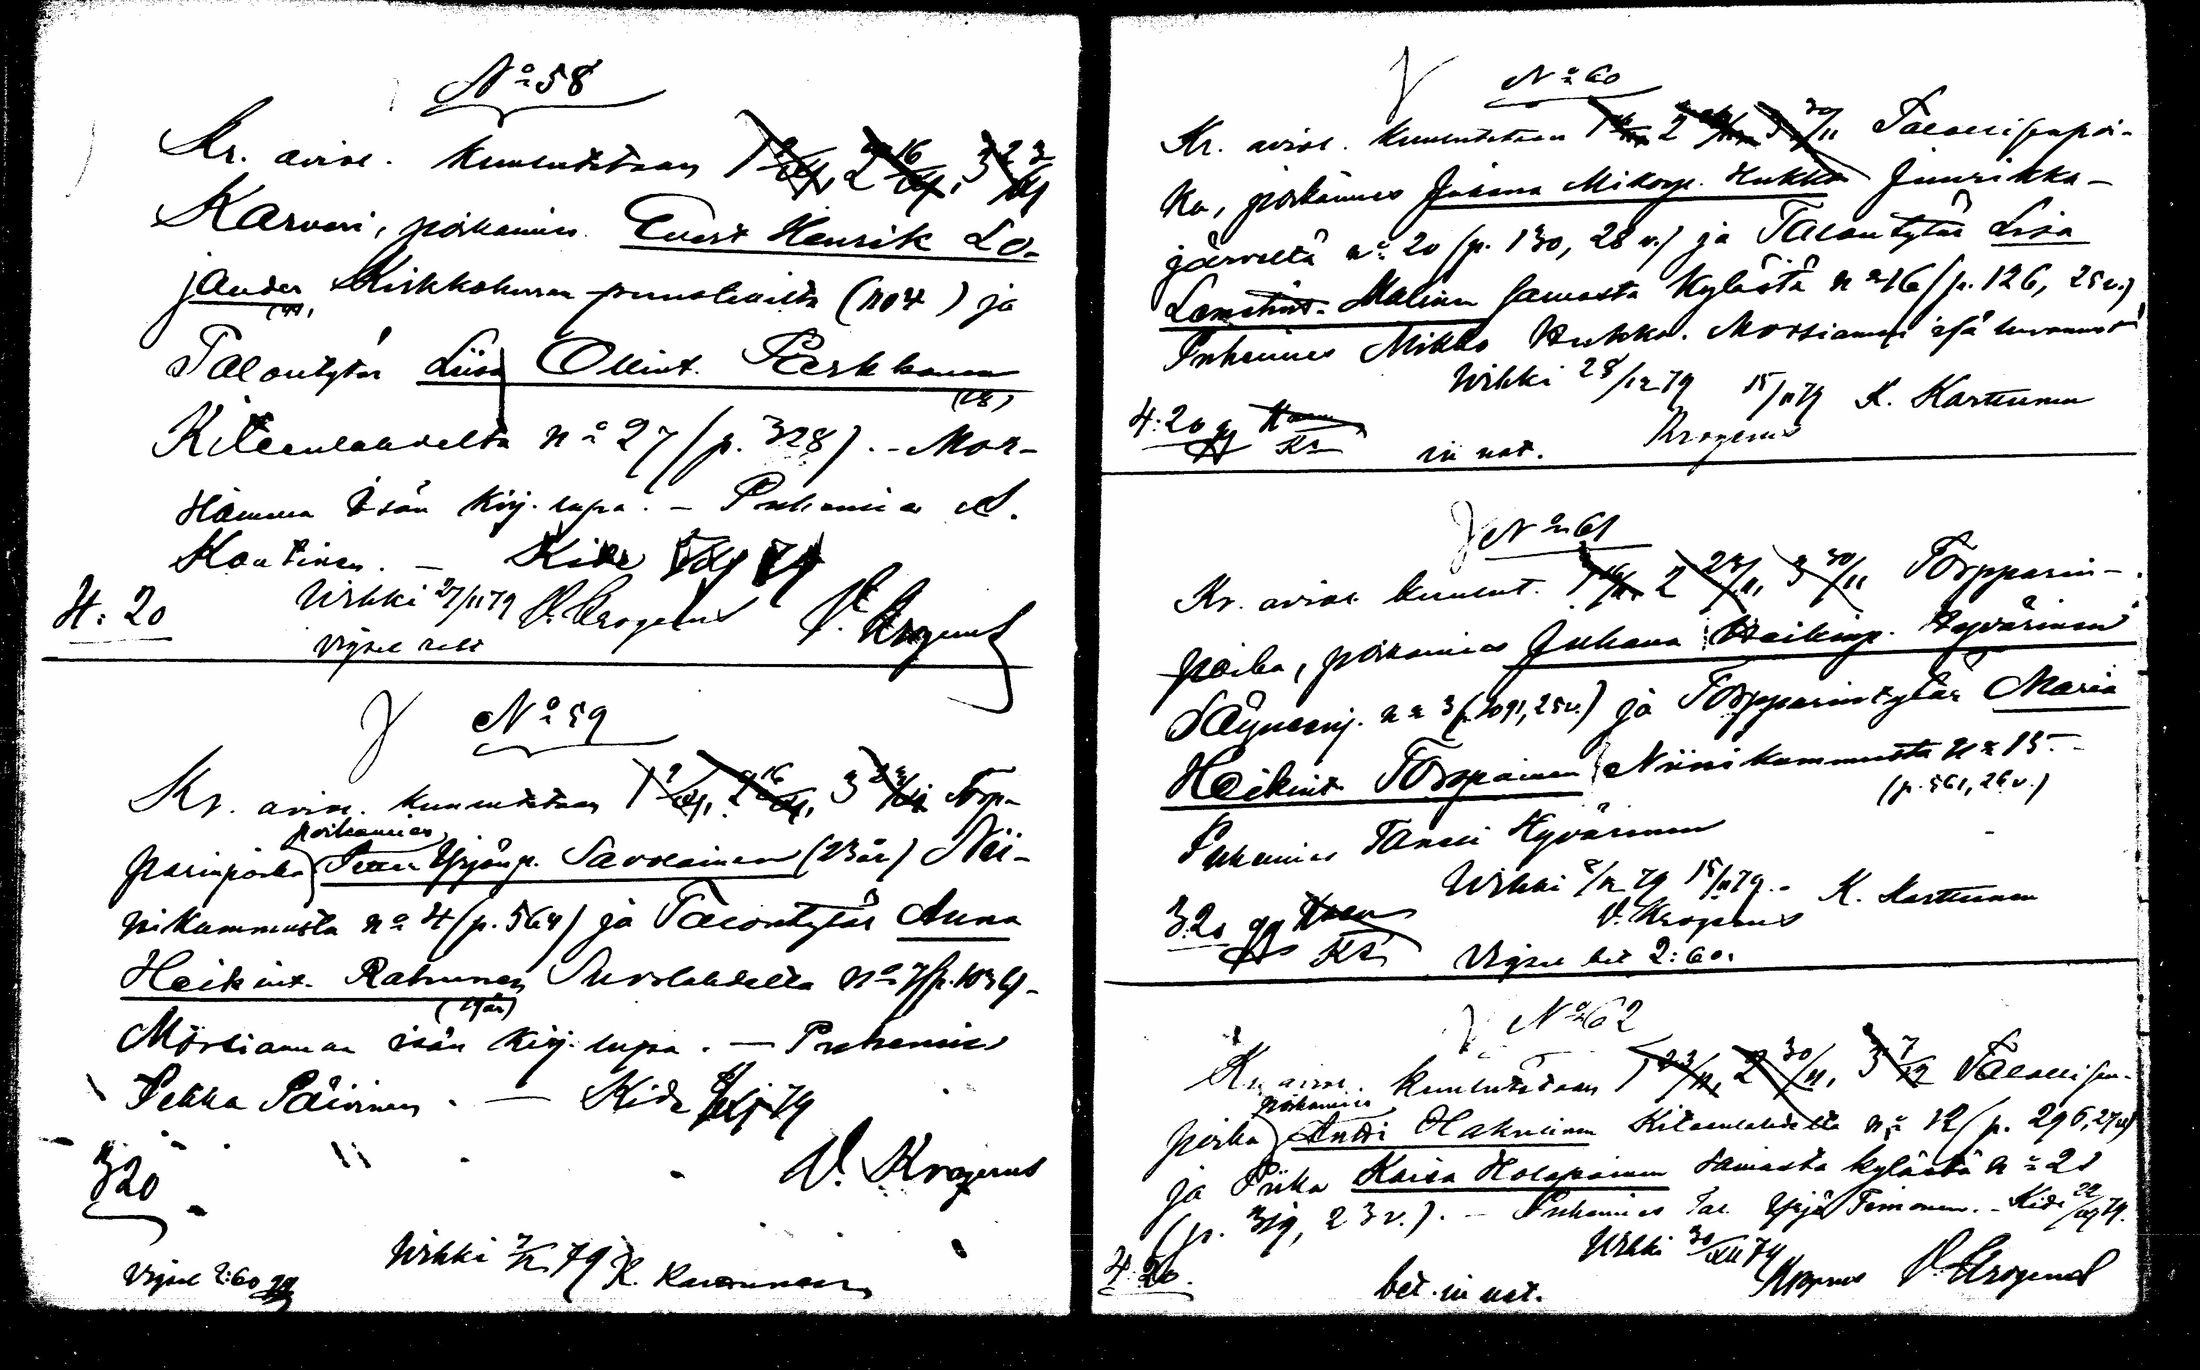 No 58
Kr. aviol. kuulutetaan 1 9/XI, 2 16/XI, 3 23/XI
Karvari, poikamies Evert Henrik Lo-
jander, Kirkkoherran puustellilta (no 4) ja
Talontytär Liisa Ollint. Perkkanen
Kiteenlahdelta no 27 (p. 328). - Mor-
siamen isän kirj. lupa. - Puhemies A.
Kontinen. - Kide
4:20
Wihki 27/11 79 V. Krogerus V. Krogerus
No 59
Kr. aviol. kuulutetaan 1 9/XI, 2 16/XI, 3 23/XI Torp-
poikamies
parinpoika Yrjönp. Savolainen (23 år) Nii-
nikummusta no 4 (p. 564) ja Talontytär Anna
Heikint. Rahunen Suorlahdelta no 7
(19 år)
Morsiamen isän kirj. lupa. - Puhemies
Pekka Päivinen. - Kide 79
320
V. Krogerus
Vigsel 2:60
Wihki 7/12 79 K. Karttunen
No 60
Kr. aviol. kuulutetaan 1 2 3 30/11 Talollisenpoi-
ka, poikamies Juhana Mikonp. Hukka Juurikka-
järveltä no 20 (p. 130, 28 v.) ja Talontytär Lisa
Malinen samasta kylästä no 16 (p. 126, 25 v.)
Puhemies Mikko Hukka. Morsiamen isä luvannut
Wihki 28/12 79 15/11 79 K. Karttunen
4:20 Krogerus
in nat.
No 61
Kr. aviol. kuulut. 1 2 23/11, 3 30/11 Torpparin-
poika, poikamies Juhana Heikinp. Hyvärinen
no 3 (1091, 25 v.) ja Torpparintytär Maria
Heikint. Toropainen Niinikummusta no 15.
(p. 561, 26 v.)
Puhemies Taneli Hyvärinen
Wihki 79 15/11 79. K. Karttunen
3.20 V. Krogerus
Vigsel bet 2:60.
No 62
Kr. aviol. kuulutetaan 1 23/11, 2 30/11, 3 7/12 Talollisen-
poikamies
poika Antti Hakulinen Kiteenlahdelta no 12 (p. 296, 27 v.)
ja Piika Kaisa Holopainen samasta kylästä no 21
(p. 319, 23 v.). - Puhemies Tal. Yrjö Timonen. - Kide 79.
Wihki 30/XII 79
4:20. Krogerus V. Krogerus
bet. in nat.